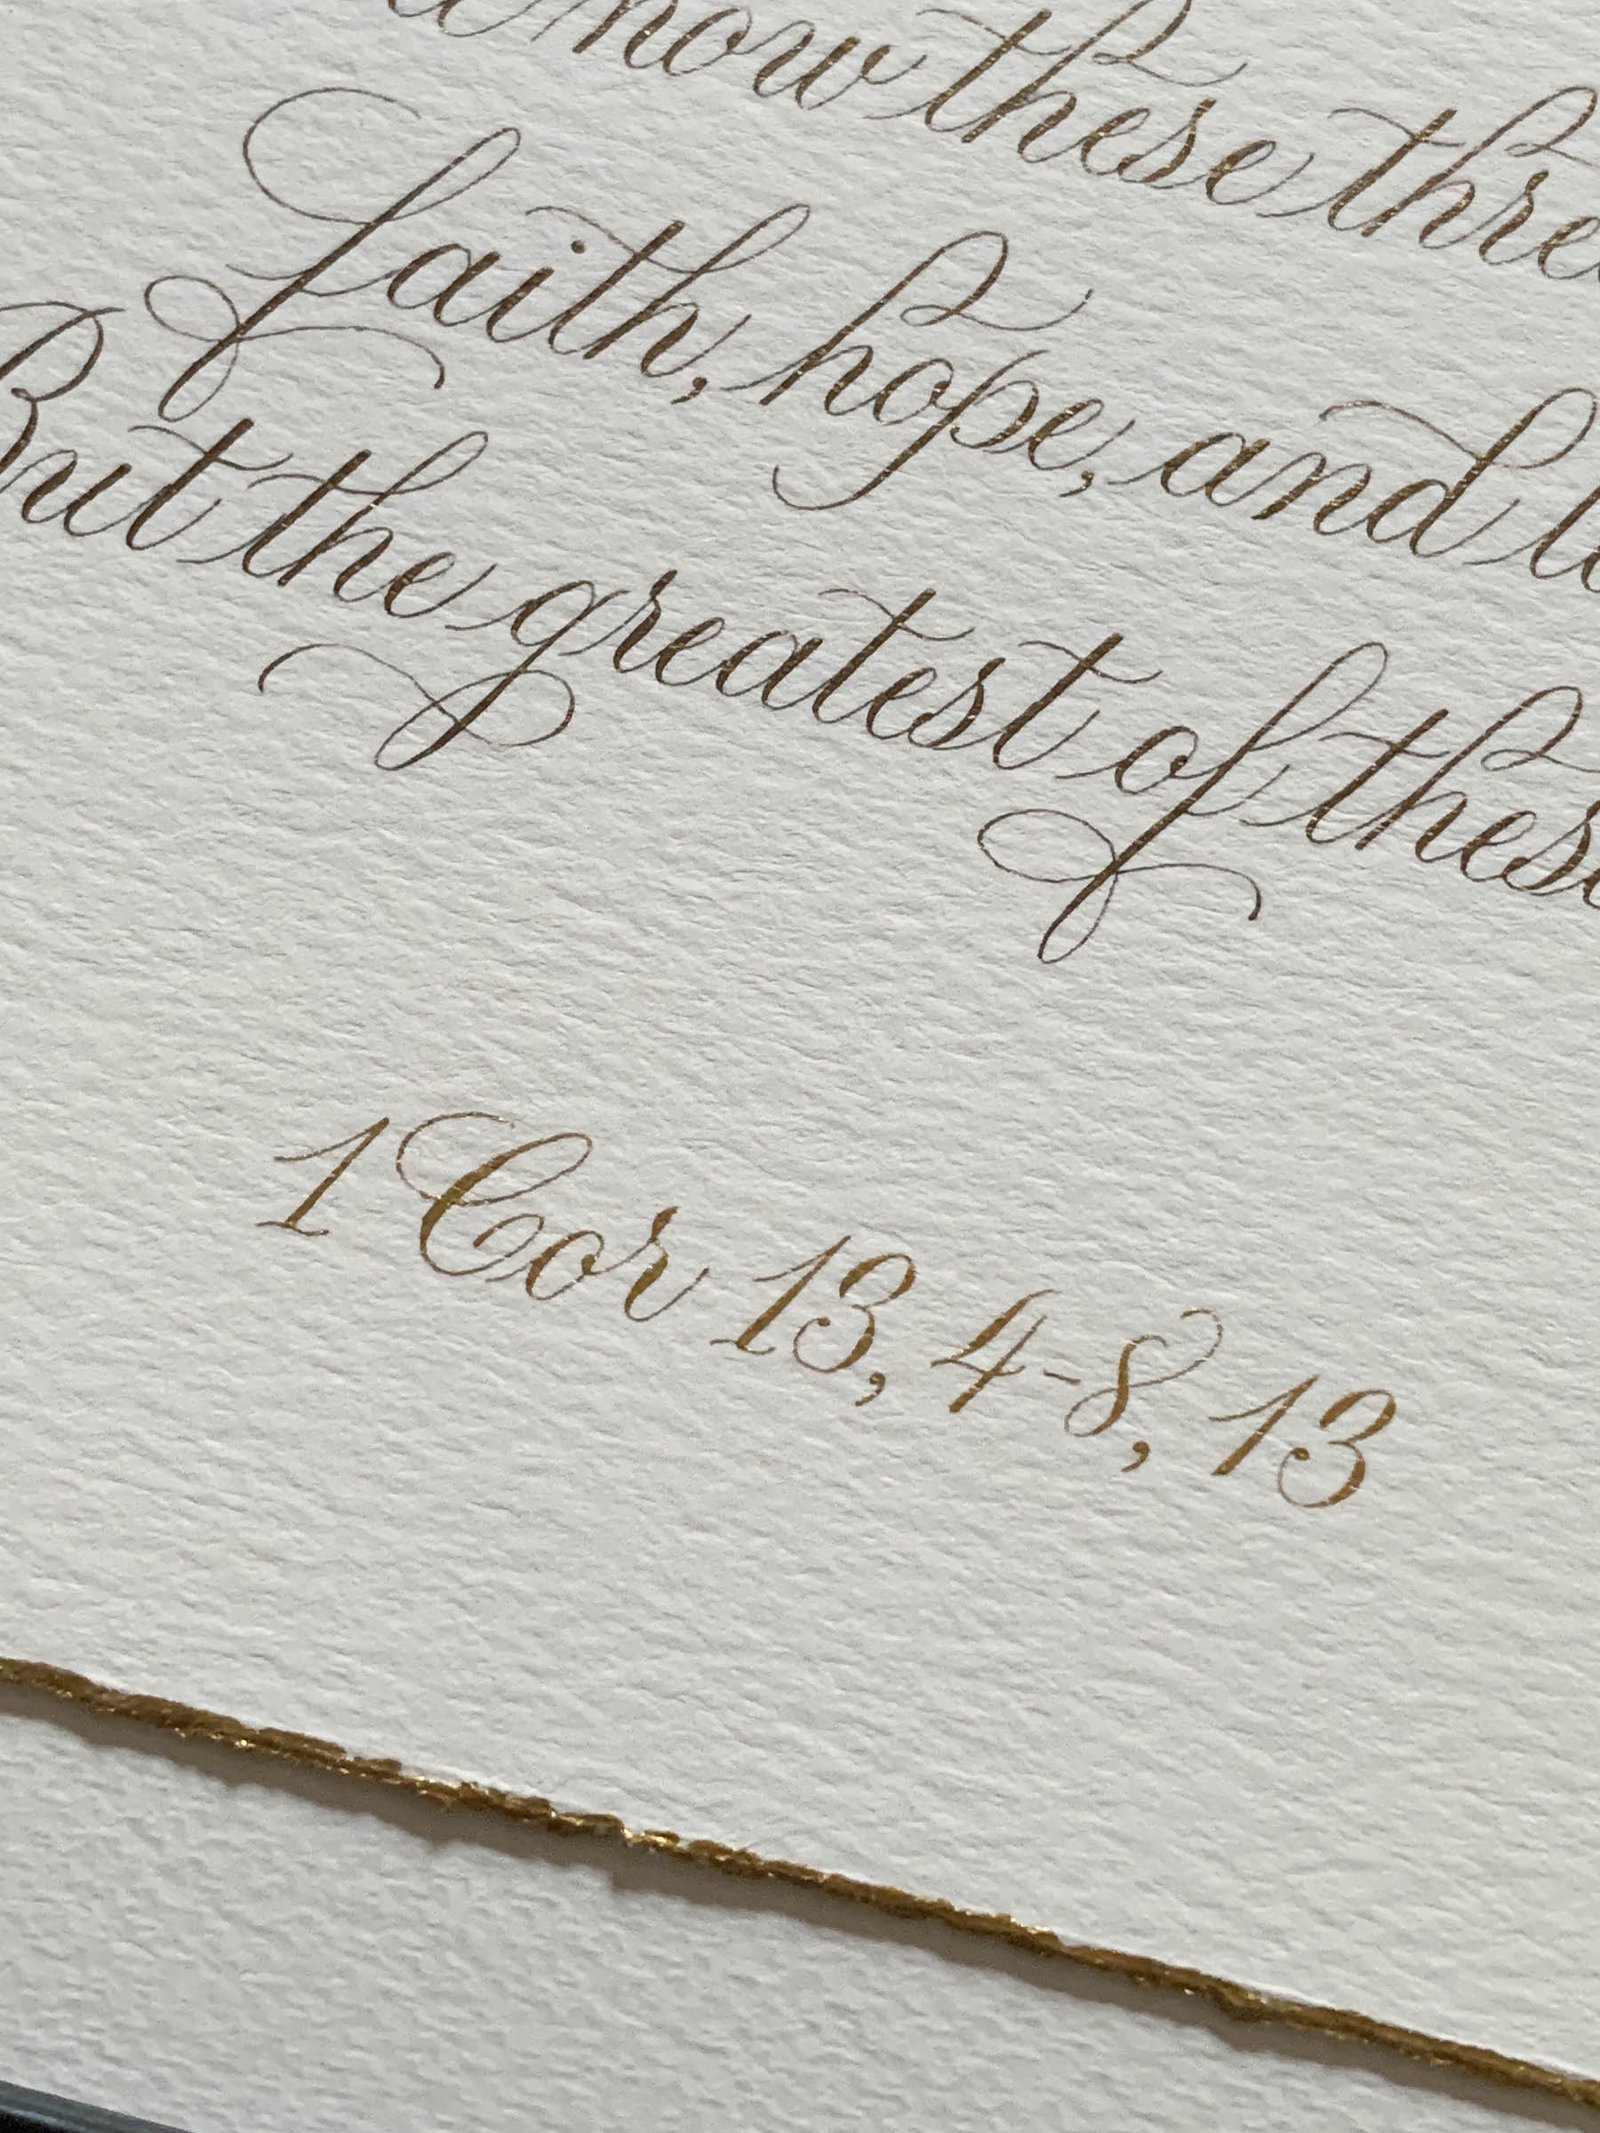 now these three
faith, hope, and
But the greatest of these
1 Cor 13, 4-8, 13